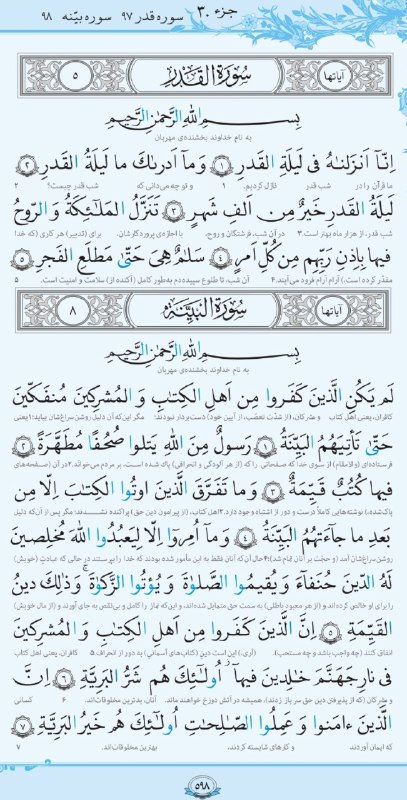 جزء ۳۰ سوره قدر ۹۷ سوره بیّنه ۹۸
آیاتها سُورَةُ القَدْرِ ۵
بِسمِ اللهِ الرَّحمٰنِ الرَّحیمِ
به نام خداوند بخشنده‌ی مهربان
اِنّا اَنزَلناهُ فی لَیلَةِ القَدرِ ۱ وَ ما اَدراكَ ما لَیلَةُ القَدرِ ۲
ما قرآن را در شب قدر نازل کردیم. ۱ و تو چه می‌دانی که شب قدر چیست؟ ۲
لَیلَةُ القَدرِ خَیرٌ مِن اَلفِ شَهرٍ ۳ تَنَزَّلُ المَلائِكَةُ وَ الرّوحُ
شب قدر، از هزار ماه بهتر است. ۳ در آن شب، فرشتگان و روح، با اجازه‌ی پروردگارشان، برای (تدبیر) هر کاری (که خدا
فیها بِاِذنِ رَبِّهِم مِن كُلِّ اَمرٍ ۴ سَلامٌ هِیَ حَتّىٰ مَطلَعِ الفَجرِ ۵
مقدّر کرده است،) آرام آرام فرود می‌آیند. ۴ آن شب، تا طلوع سپیده‌دم به‌طور کامل (آکنده از) سلامت و امنیت است. ۵
آیاتها سُورَةُ البَیِّنَةِ ۸
بِسمِ اللهِ الرَّحمٰنِ الرَّحیمِ
به نام خداوند بخشنده‌ی مهربان
لَم یَكُنِ الَّذینَ كَفَروا مِن اَهلِ الكِتابِ وَ المُشرِكینَ مُنفَكّینَ
کافران، یعنی اهل کتاب و مشرکان، (از شدّت تعصّب، از آیین خود) دست‌بردار نبودند؛ مگر این‌که آن دلیل روشن سراغ‌شان بیاید؛ ۱ یعنی
حَتّىٰ تَأتِیَهُمُ البَیِّنَةُ ۱ رَسولٌ مِنَ اللهِ یَتلو صُحُفًا مُطَهَّرَةً ۲
فرستاده‌ای (والامقام) از سوی خدا که صفحاتی را که (از هر آلودگی و انحرافی) پاک شده است، بر مردم می‌خواند. ۲ در آن (صفحه‌های
فیها كُتُبٌ قَیِّمَةٌ ۳ وَ ما تَفَرَّقَ الَّذینَ اوتُوا الكِتابَ اِلّا مِن
پاک‌شده،) نوشته‌هایی کاملاً درست و دور از اشتباه وجود دارد. ۳ اهل کتاب، (از پیرامون دین حق) پراکنده نشدند؛ مگر پس از آن‌که دلیل
بَعدِ ما جاءَتهُمُ البَیِّنَةُ ۴ وَ ما اُمِروا اِلّا لِیَعبُدُوا اللهَ مُخلِصینَ
روشن سراغ‌شان آمد (و حجّت بر آنان تمام شد)؛ ۴ حال آن‌که آنان فقط به این مأمور شده بودند که خدا را بپرستند در حالی که عبادتِ (خویش)
لَهُ الدّینَ حُنَفاءَ وَ یُقیمُوا الصَّلوٰةَ وَ یُؤتُوا الزَّكوٰةَ ۚ وَ ذٰلِكَ دینُ
را برای او خالص کرده‌اند و (از هر معبود باطلی) به سمت حق متمایل شده‌اند، و این‌که نماز را کامل و بی‌نقص به جای آورند و (از مال خویش)
القَیِّمَةِ ۵ اِنَّ الَّذینَ كَفَروا مِن اَهلِ الكِتابِ وَ المُشرِكینَ
انفاق کنند (چه واجب باشد و چه مستحب). (آری،) این است دینِ (کتاب‌های آسمانیِ) به دور از انحراف. ۵ کافران، یعنی اهل کتاب
فی نارِ جَهَنَّمَ خالِدینَ فیها ۚ اُولٰئِكَ هُم شَرُّ البَرِیَّةِ ۶ اِنَّ
و مشرکان (که از پذیرفتن دین حق سر باز زدند)، همیشه در آتش دوزخ خواهند ماند. آنان، بدترین مخلوقات‌اند. ۶ کسانی
الَّذینَ ءامَنوا وَ عَمِلُوا الصّالِحاتِ اُولٰئِكَ هُم خَیرُ البَرِیَّةِ ۷
که ایمان آوردند و کارهای شایسته کردند، بهترین مخلوقات‌اند. ۷
۵۹۸